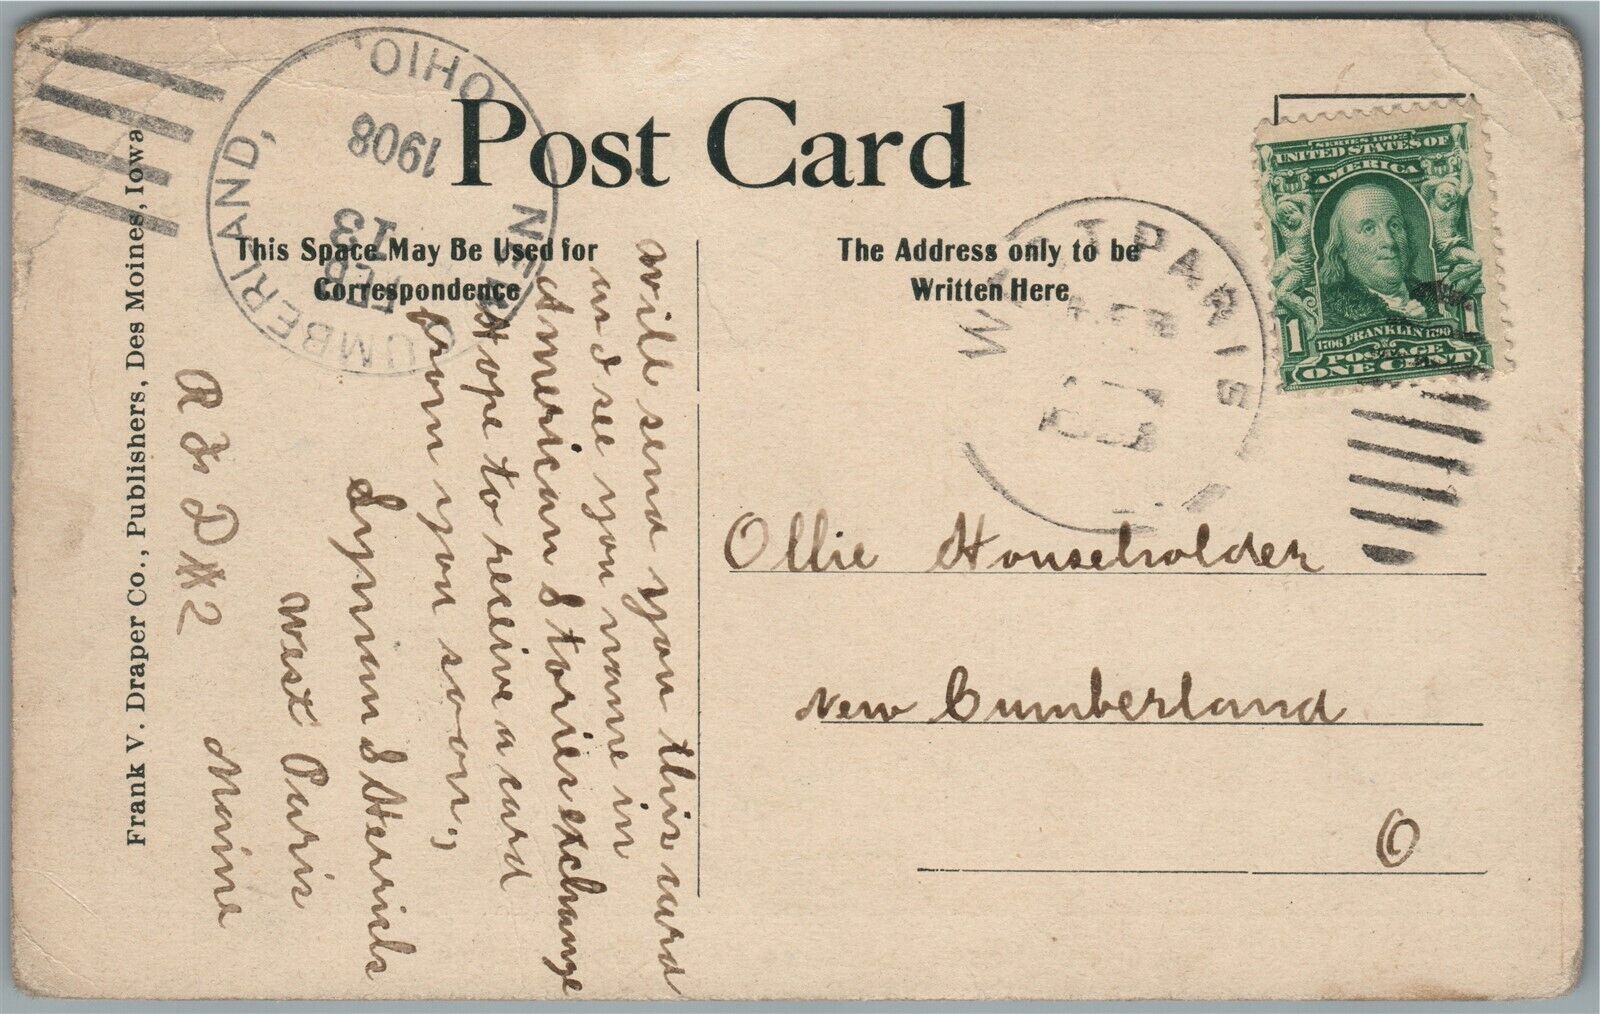 Post Card
This Space May Be Used for
Correspondence
The Address only to be
Written Here
Frank V. Draper Co., Publishers, Des Moines, Iowa
NEW CUMBERLAND,
OHIO.
FEB
13
1908
WEST PARIS
SERIES 1902
UNITED STATES OF
AMERICA
1706 FRANKLIN 1790
1 1
POSTAGE
ONE CENT
Ollie Householder
New Cumberland
O
will send you this card
and see you name in
American Stories exchange
Hope to receive a card
from you soon,
Lyman S Herrick
West Paris
Maine
R F D #2